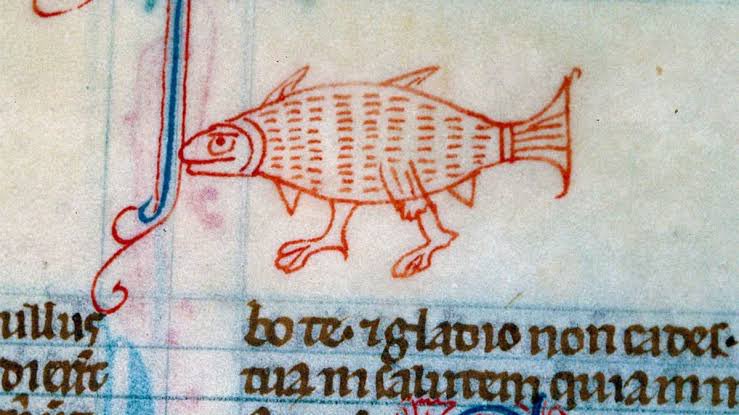 ullus
bo te· ⁊ gladio non cades·
tua in salutem quia in m